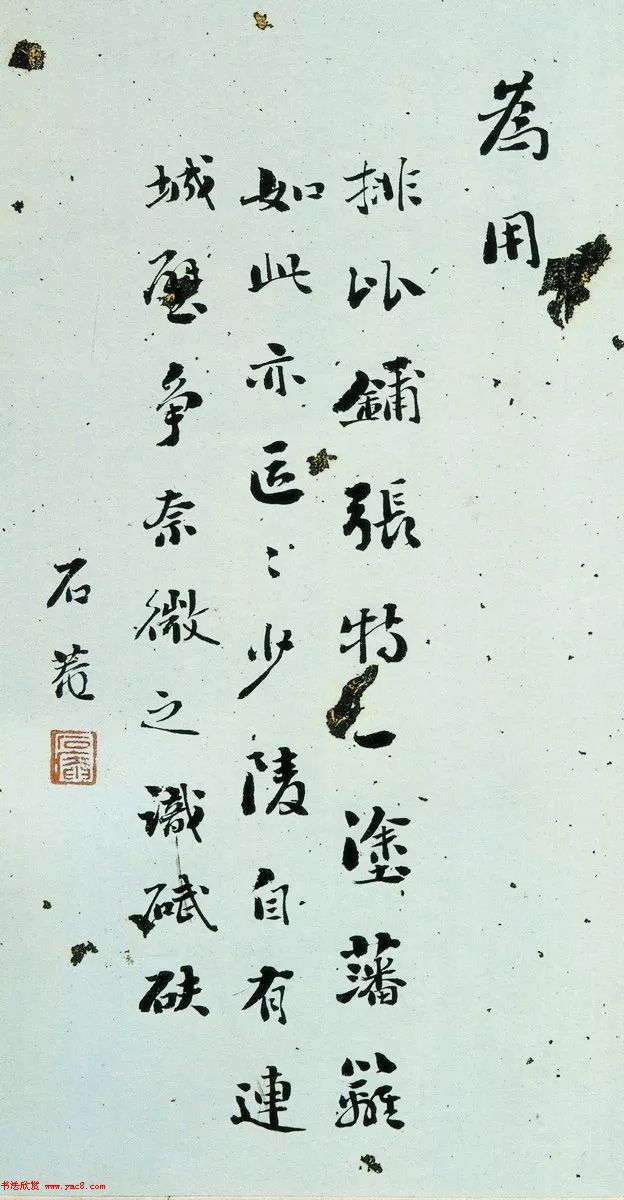 為用
排比鋪張特一塗藩籬
如此亦區〻少陵自有連
城璧争奈微之識碔砆
石菴
石菴
书法欣赏 www.yac8.com